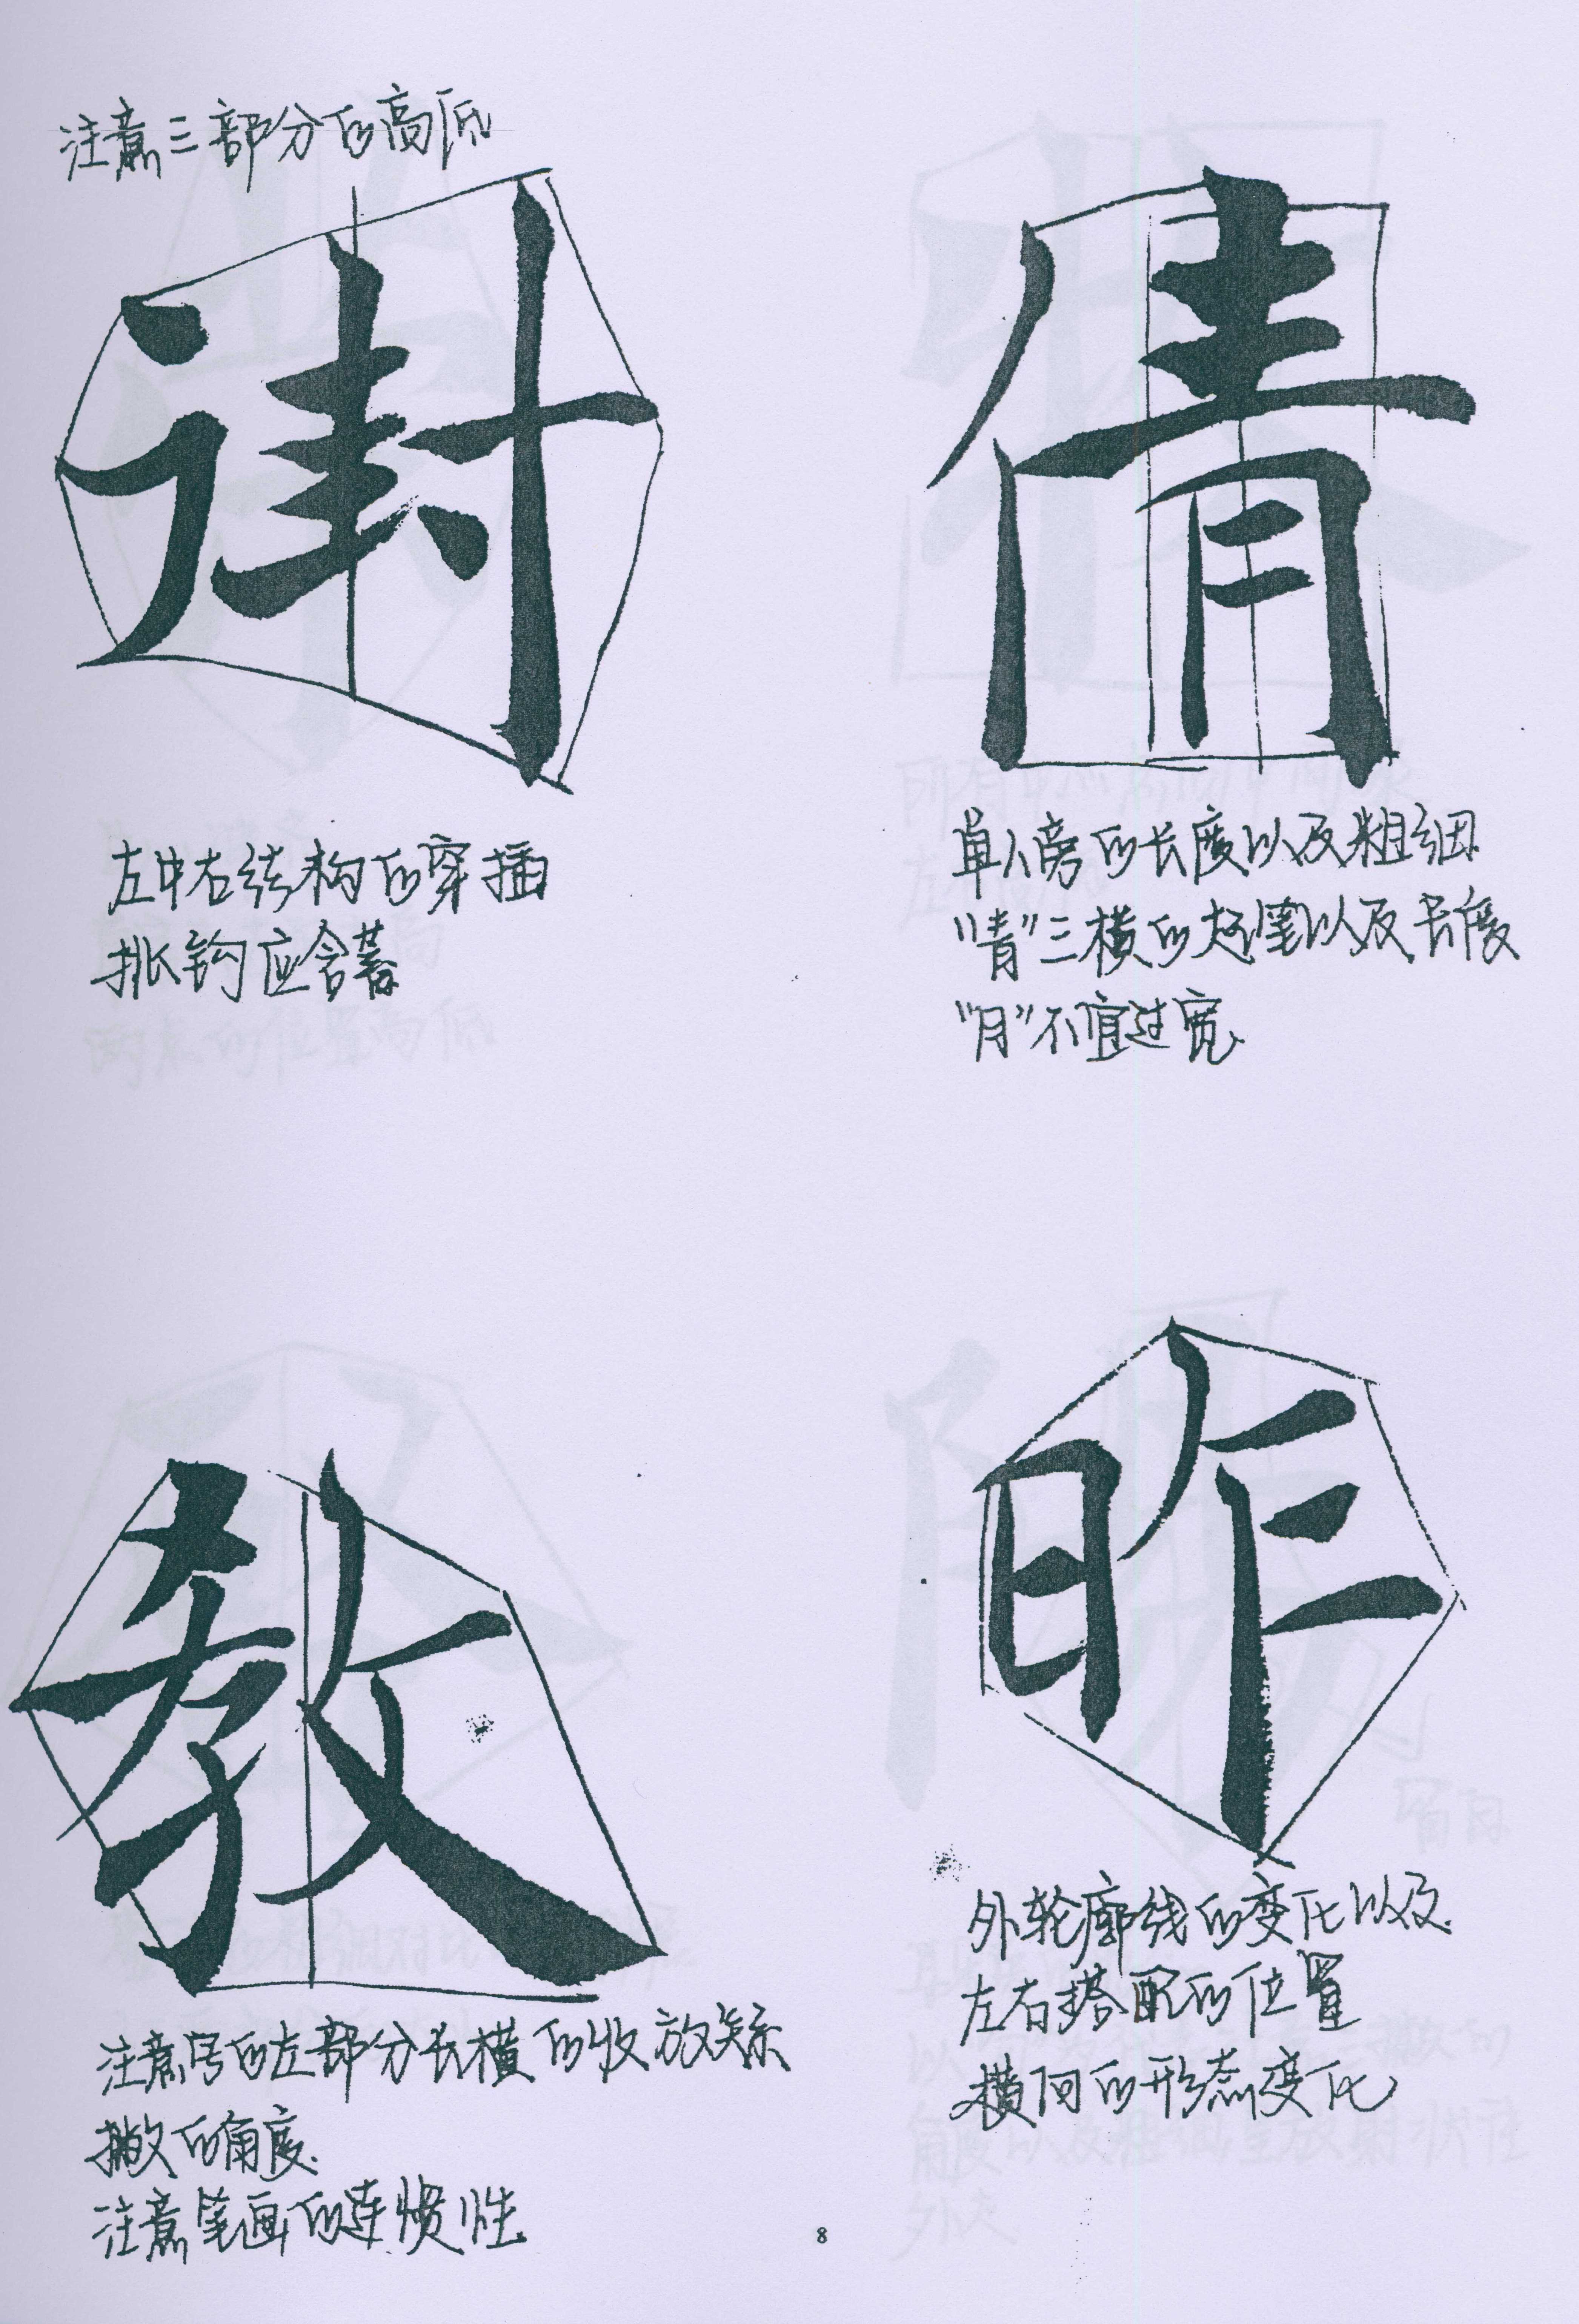 注意三部分的高低
倩
左中右结构的穿插
挑钩应含蓄
单人旁的长度以及粗细
"青"三横的起笔以及长度
"月"不宜过宽
教
昨
注意的左部分长横的收放关系
撇的角度
注意笔画的连惯性
外轮廓线的变化以及
左右搭配的位置
横向的形态变化
8